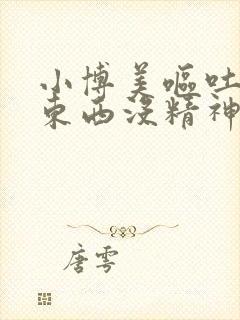 小博美呕吐
东西没精神
唐雩